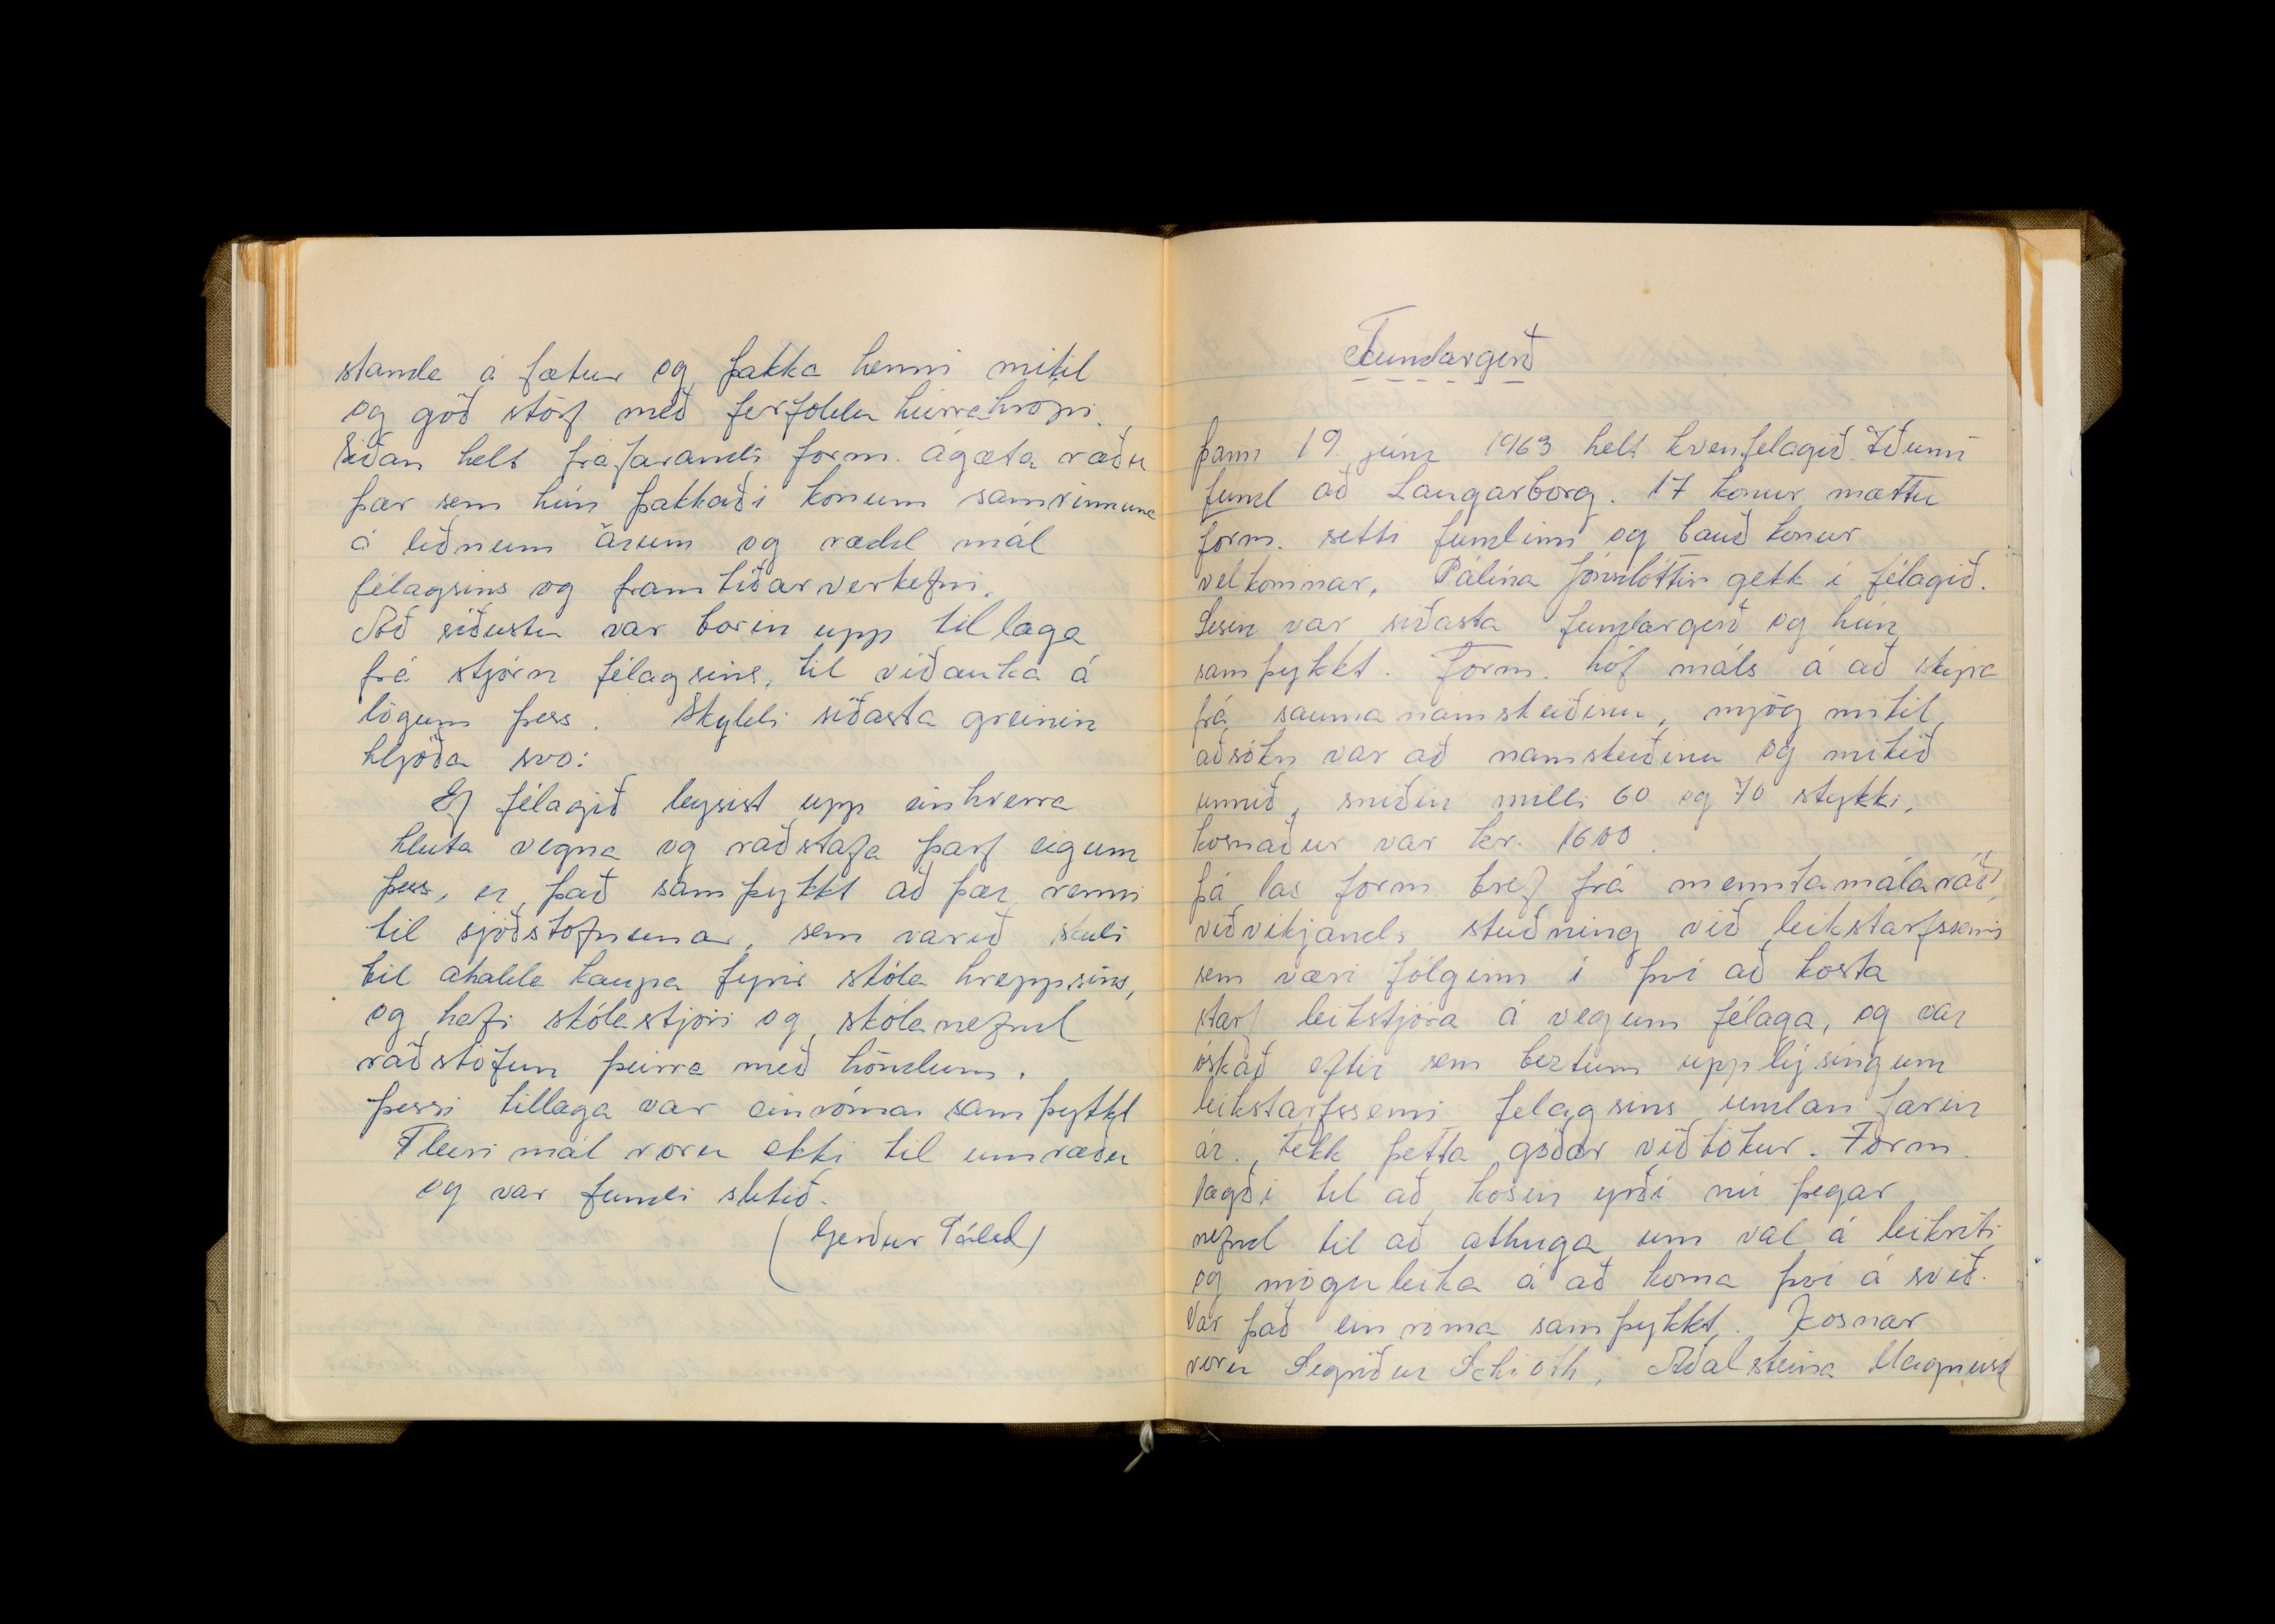 standa á fætur og þakka henni mikil
og góð störf með ferföldu húrrahrópi.
Síðan helt fráfarandi form. ágæta ræðu
þar sem hún þakkaði konum samvinnuna
á liðnum árum og rædd mál
félagsins og framtíðarverkefni.
Að síðustu var borin upp tillaga
frá stjórn félagsins, til viðauka á
lögum þess. Skyldi síðasta greinin
hljóða svo:
Ef félagið leysist upp einhverra
hluta vegna og ráðstafa þarf eigum
þess, er það samþykkt að þær renni
til sjóðstofnunar, sem varið skuli
til áhalda kaupa fyrir skóla hreppsins,
og hafi skólastjóri og skólanefnd
ráðstöfun þeirra með höndum.
Þessi tillaga var einróma samþykkt
Fleiri mál voru ekki til umræðu
og var fundi slitið.
(Gerður Pálsd)
Fundargerð
Þann 19. júní 1963 helt kvenfelagið Iðunn
fund að Laugarborg. 17 konur mættu
form. setti fundinn og bauð konur
velkomnar, Pálína Jónsdóttir gekk í félagið.
Lesin var síðasta fundargerð og hún
samþykkt. Form. hóf máls á að skýra
frá sauma namskeiðinu, mjög mikil,
aðsókn var að namskeiðinu og mikið
unnið, sniðin milli 60 og 70 stykki,
kosnaður var kr. 1600.
Þá las form bref frá menntamálaráði,
viðvikjandi stuðning við leikstarfssemi
sem væri fólginn í því að kosta
starf leikstjóra á vegum félaga, og var
óskað eftir sem beztum upplýsingum
leikstarfssemi felagsins undan farin
ár. Fekk þetta góðar viðtökur. Form.
lagði til að kosin yrði nú þegar
nefnd til að athuga um val á leikriti
og möguleika á að koma því á svið.
Var það einróma samþykkt. Kosnar
voru Sigríður Schiöth, Aðalsteina Magnúsd